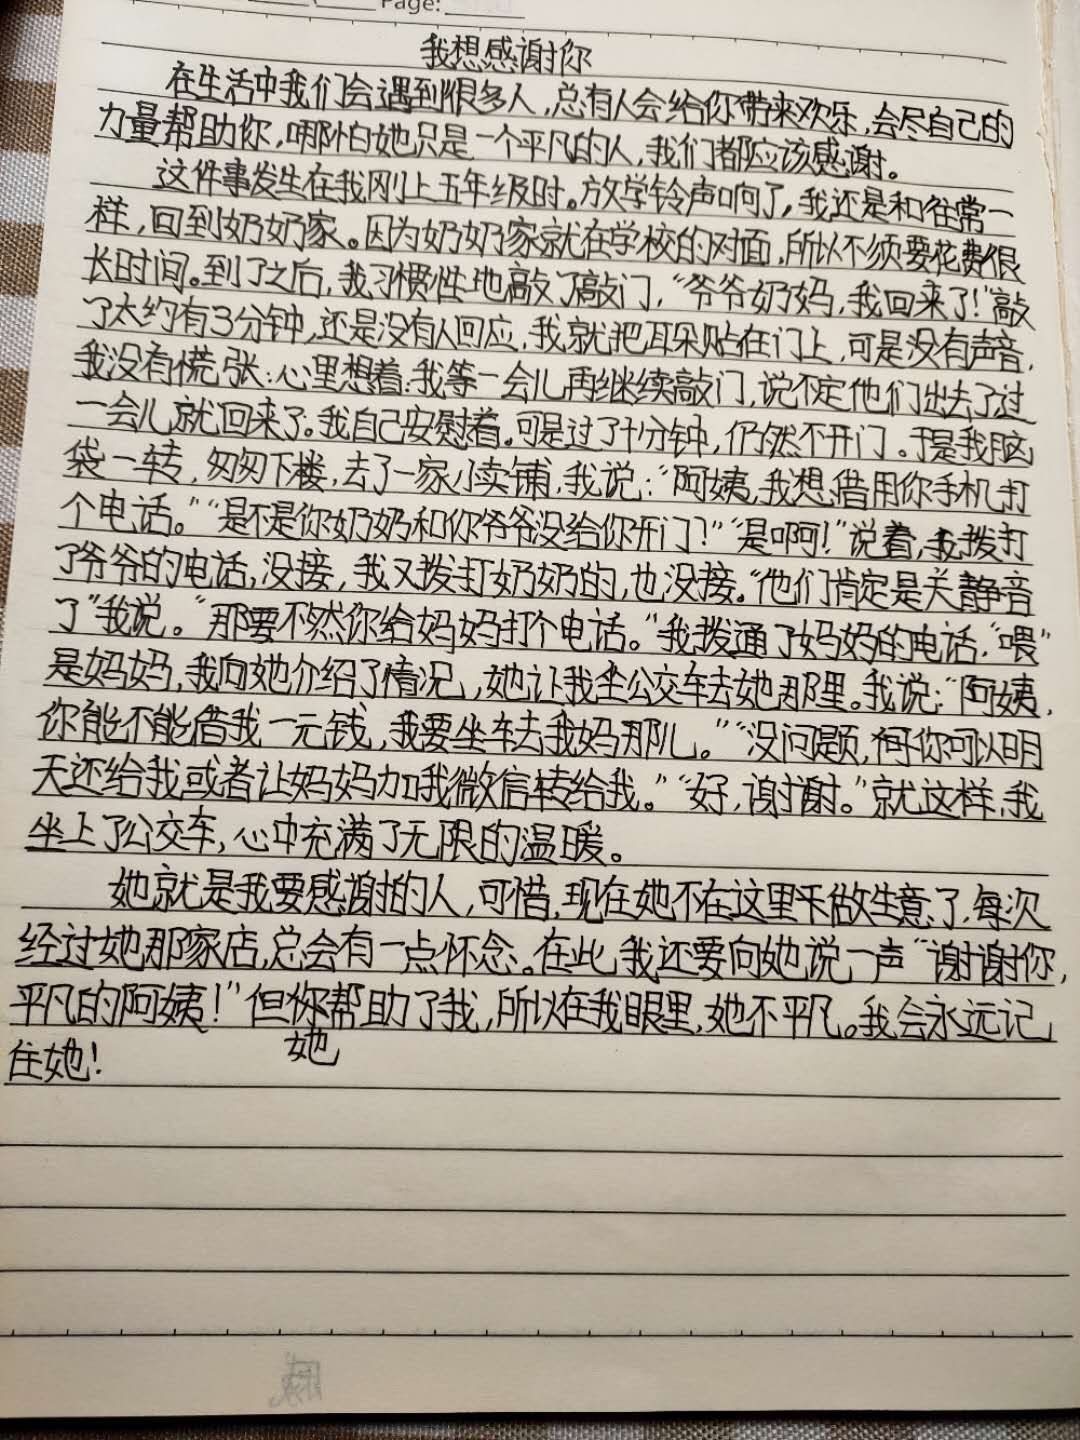 Page:
我想感谢你
在生活中我们会遇到很多人,总有人会给你带来欢乐,会尽自己的
力量帮助你,哪怕她只是一个平凡的人,我们都应该感谢。
这件事发生在我刚上五年级时。放学铃声响了,我还是和往常一
样,回到奶奶家。因为奶奶家就在学校的对面,所以不须要花费很
长时间。到了之后,我习惯性地敲了敲门,“爷爷奶妈,我回来了!”敲
了大约有3分钟,还是没有人回应,我就把耳朵贴在门上,可是没有声音,
我没有慌张:心里想着:我等一会儿再继续敲门,说不定他们出去了,过
一会儿就回来了。我自己安慰着。可是过了十分钟,仍然不开门。于是我脑
袋一转,匆匆下楼,去了一家小卖铺,我说:“阿姨,我想借用你手机打
个电话。”“是不是你奶奶和你爷爷没给你开门?”“是啊!”说着,我拨打
了爷爷的电话,没接,我又拨打奶奶的,也没接。“他们肯定是关静音
了”我说。“那要不然你给妈妈打个电话。”我拨通了妈妈的电话,“喂”
是妈妈,我向她介绍了情况,她让我坐公交车去她那里。我说:“阿姨,
你能不能借我一元钱,我要坐车去我妈那儿。”“没问题,你可以明
天还给我或者让妈妈加我微信转给我。”“好,谢谢。”就这样,我
坐上了公交车,心中充满了无限的温暖。
她就是我要感谢的人,可惜,现在她不在这里做生意了,每次
经过她那家店,总会有一点怀念。在此,我还要向她说一声“谢谢你,
平凡的阿姨!”但你帮助了我,所以在我眼里,她不平凡。我会永远记
她
住她!